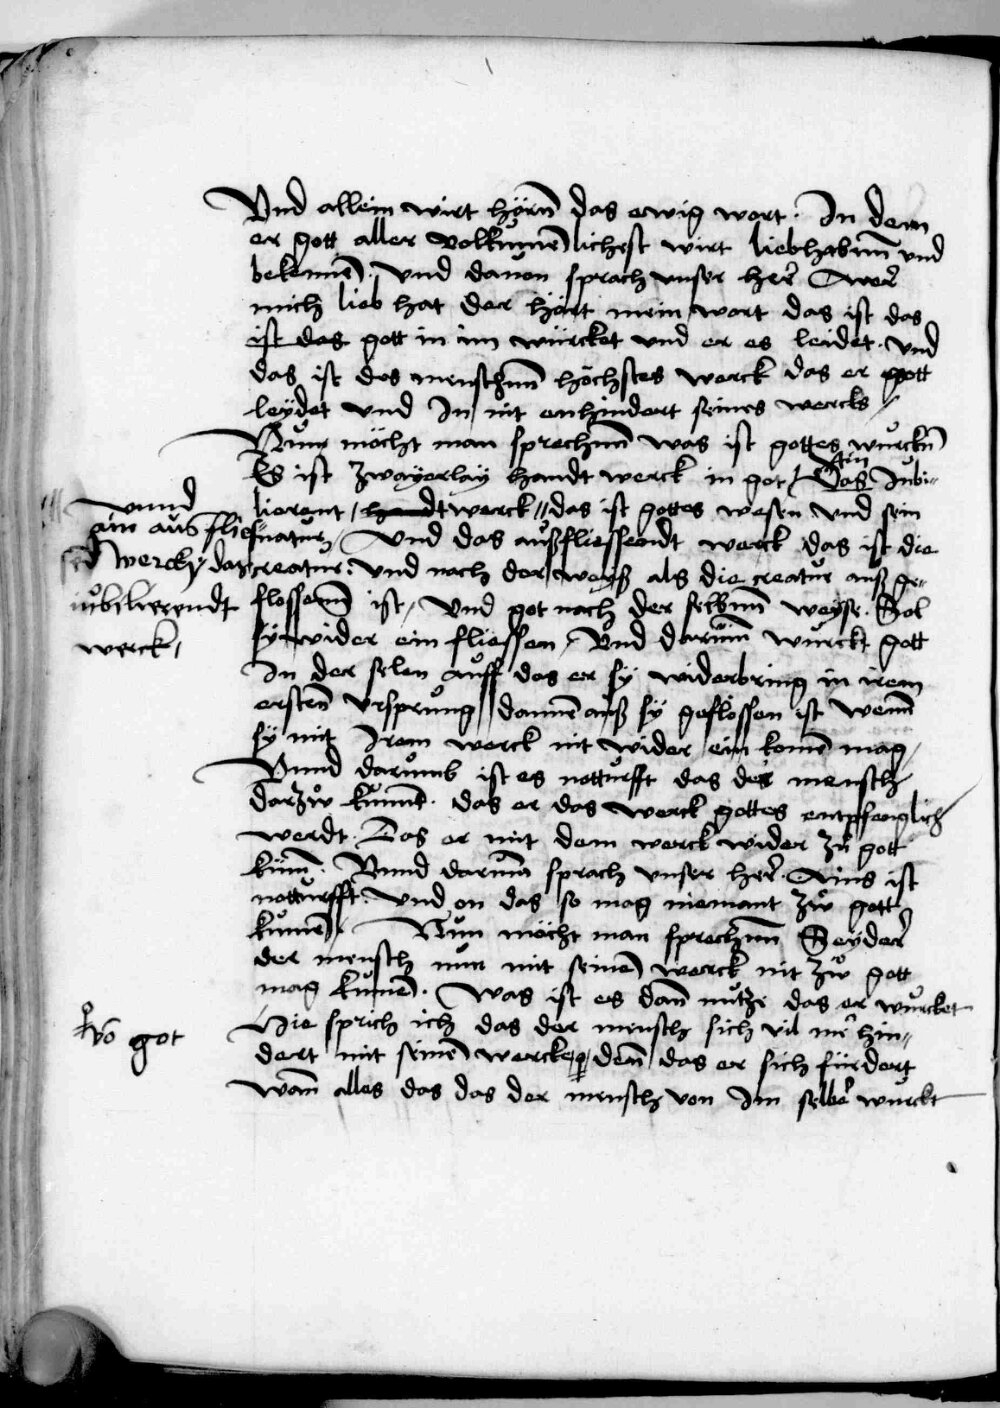 Vnd allein wirt hörn̄ das ewig wort. In dem
er gott aller volkumēlichest wirt liebhabm̄ vnd
bekennē. Vnd dauon sprach vnser her̄ Wer̄
mich lieb hat der hört mein wort das ist das
ist das gott in im würcket vnd er es leidet. vnd
das ist des menschm̄ höchstes werck das er gott
leydet vnd In nit enhindert seines wercks
Nun möcht man sprechm̄ was ist gottes wurckn̄
Es ist zwayerlay handt werck in got / Das Ein Jubi-
lierent / handt werck // das ist gottes wesen vnd sein
natur / Vnd das außfliessendt werck das ist die
creatur: vnd nach der weyß als die creatur auß ge-
flossenn ist / Vnd got nach der selbm̄ weyse. Sol
sy wider ein fliessen / Vnd darüm würckt gott
In der selen auff das er sy widerbring in irem
ersten̄ vrsprung / dannē auß sy geflossen ist wenn̄
sy mit Irem werck nit wider ein komē mag /
Vnnd darumb ist es notturfft das der mensch
darzů kummē. das er das werck gottes entpfenglich
werdt. Das er mit dem werck wider zů gott
küm̄. Vnnd darumb sprach vnser her̄. Ains ist
notturfft. vnd on das so mag niemant zů gott
kumē. Nun möcht man sprechm̄ Seyder̄
der mensch nun mit seinē werck nit zů gott
mag kumē. Was ist es dan̄ nutze das er würcket
Hie sprich ich das der mensch sich vil mē hin-
dert mit seinē wercken / den̄ das er sich fürdert
wan̄ alles das das der mensch von Im selber̄ würckt
vnnd
ain aus flies
send werck / das
iubelierendt
werck /
vō got